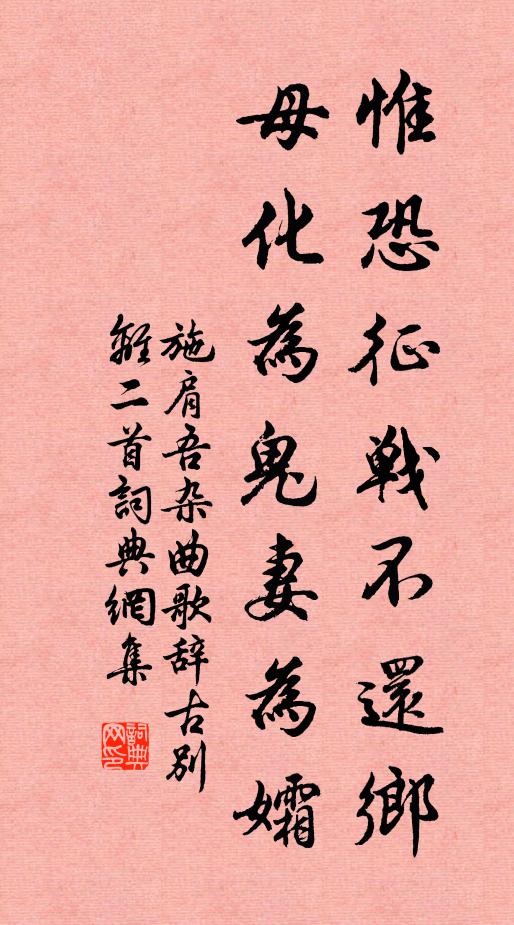 惟恐征戰不還鄉
母化為鬼妻為孀
施肩吾杂曲歌辞古别
離二首詞典網集
詞典網印